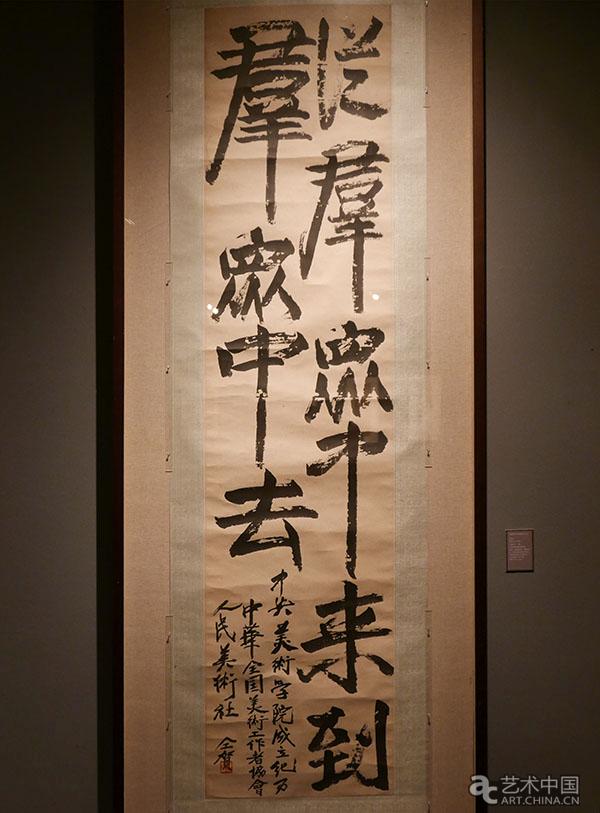 從羣眾中来到
羣眾中去
中央美術學院成立紀
中華全国美術工作者協會
人民美術社 仝賀
艺术中国
ART.CHINA.CN